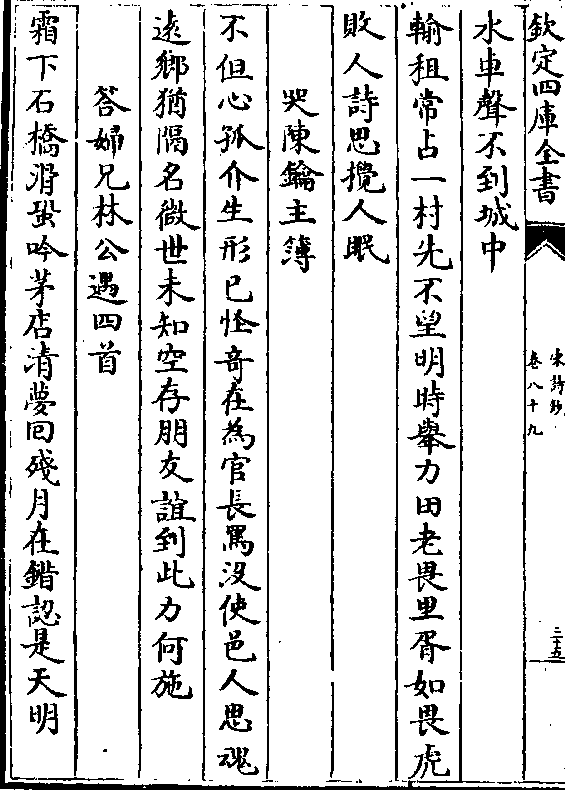 欽定四庫全書
宋詩鈔
卷八十九
二十五
水車聲不到城中
輸租常占一村先不望明時舉力田老畏里胥如畏虎
敗人詩思攪人眠
哭陳鑰主簿
不但心孤介生形已怪奇在為官長罵沒使邑人思魂
遠鄉猶隔名微世未知空存朋友誼到此力何施
答婦兄林公遇四首
霜下石橋滑蛩吟茅店清夢回殘月在錯認是天明